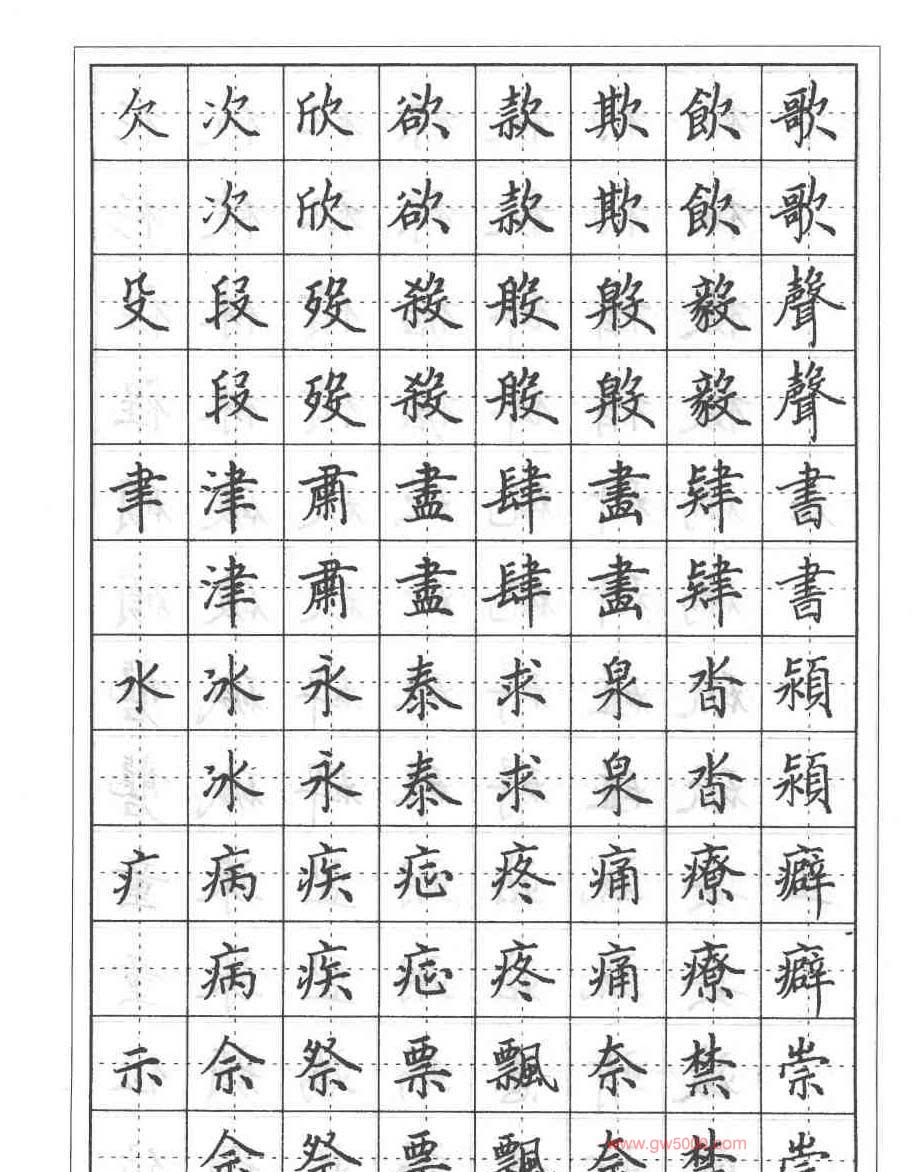 欠 次 欣 欲 款 欺 飲 歌
次 欣 欲 款 欺 飲 歌
殳 段 歿 殺 般 毅 聲
段 歿 殺 般 毅 聲
聿 津 肅 盡 肆 畫 肄 書
津 肅 盡 肆 畫 肄 書
水 冰 永 泰 求 泉 沓 潁
冰 永 泰 求 泉 沓 潁
疒 病 疾 痣 疼 痛 療 癖
病 疾 痣 疼 痛 療 癖
示 佘 祭 票 飄 奈 禁 崇
佘 祭 票 飄 奈 禁 崇
www.gw5000.com